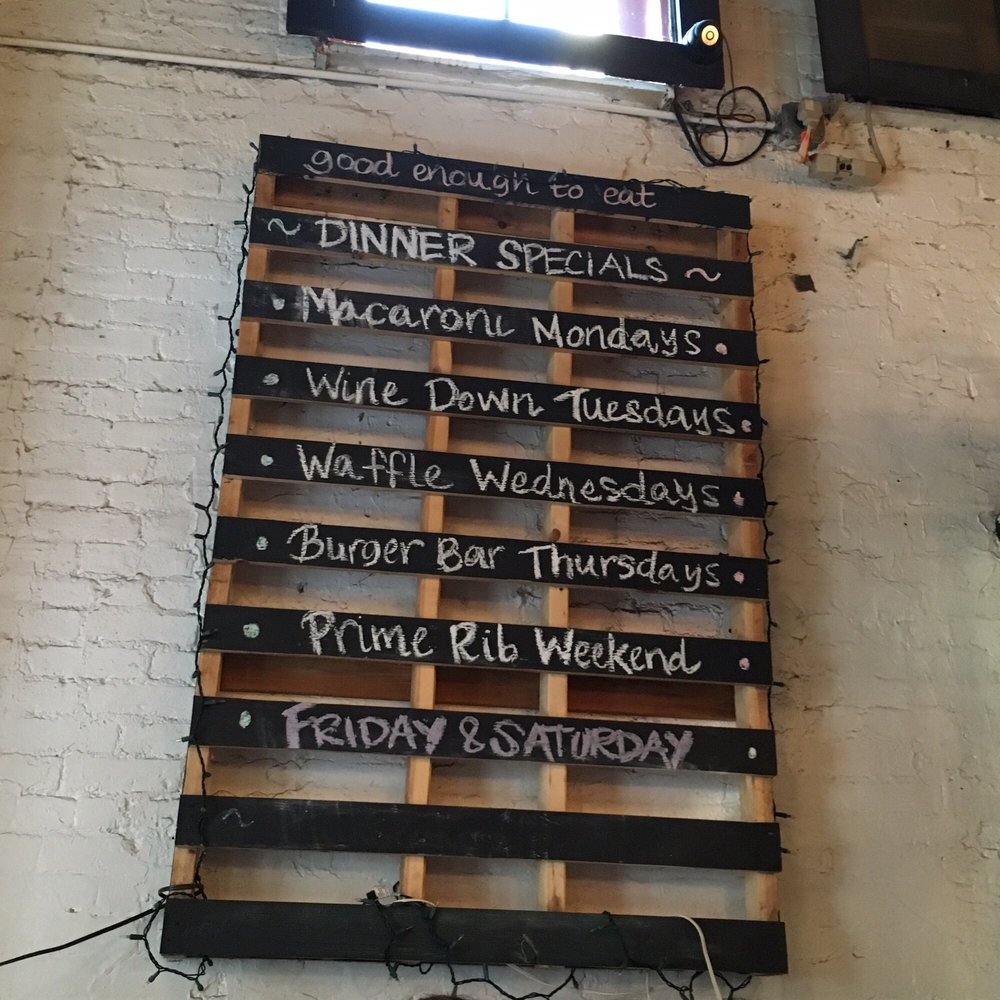 good enough to eat
~ DINNER SPECIALS ~
• Macaroni Mondays •
• Wine Down Tuesdays •
• Waffle Wednesdays •
• Burger Bar Thursdays •
• Prime Rib Weekend •
• FRIDAY & SATURDAY •
~